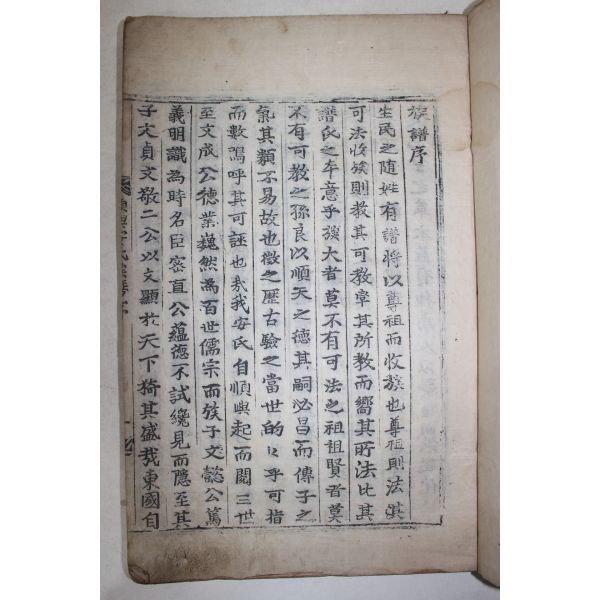 族譜序
生民之隨姓有譜將以尊祖而收族也尊祖則法其
可法收族則教其可教率其所教而嚮其所法比其
譜氏之本意乎族大者莫不有可法之祖祖賢者莫
不有可教之孫良以順天之德其嗣必昌而傳子之
氣其類不易故也徵之歷古驗之當世的〻乎可指
而數嗚呼其可誣也哉我安氏自順興起而閱三世
至文成公德業巍然爲百世儒宗而族子文懿公篤
義明識爲時名臣密直公蘊德不試纔見而隱至其
子文貞文敬二公以文顯於天下猗其盛哉東國自